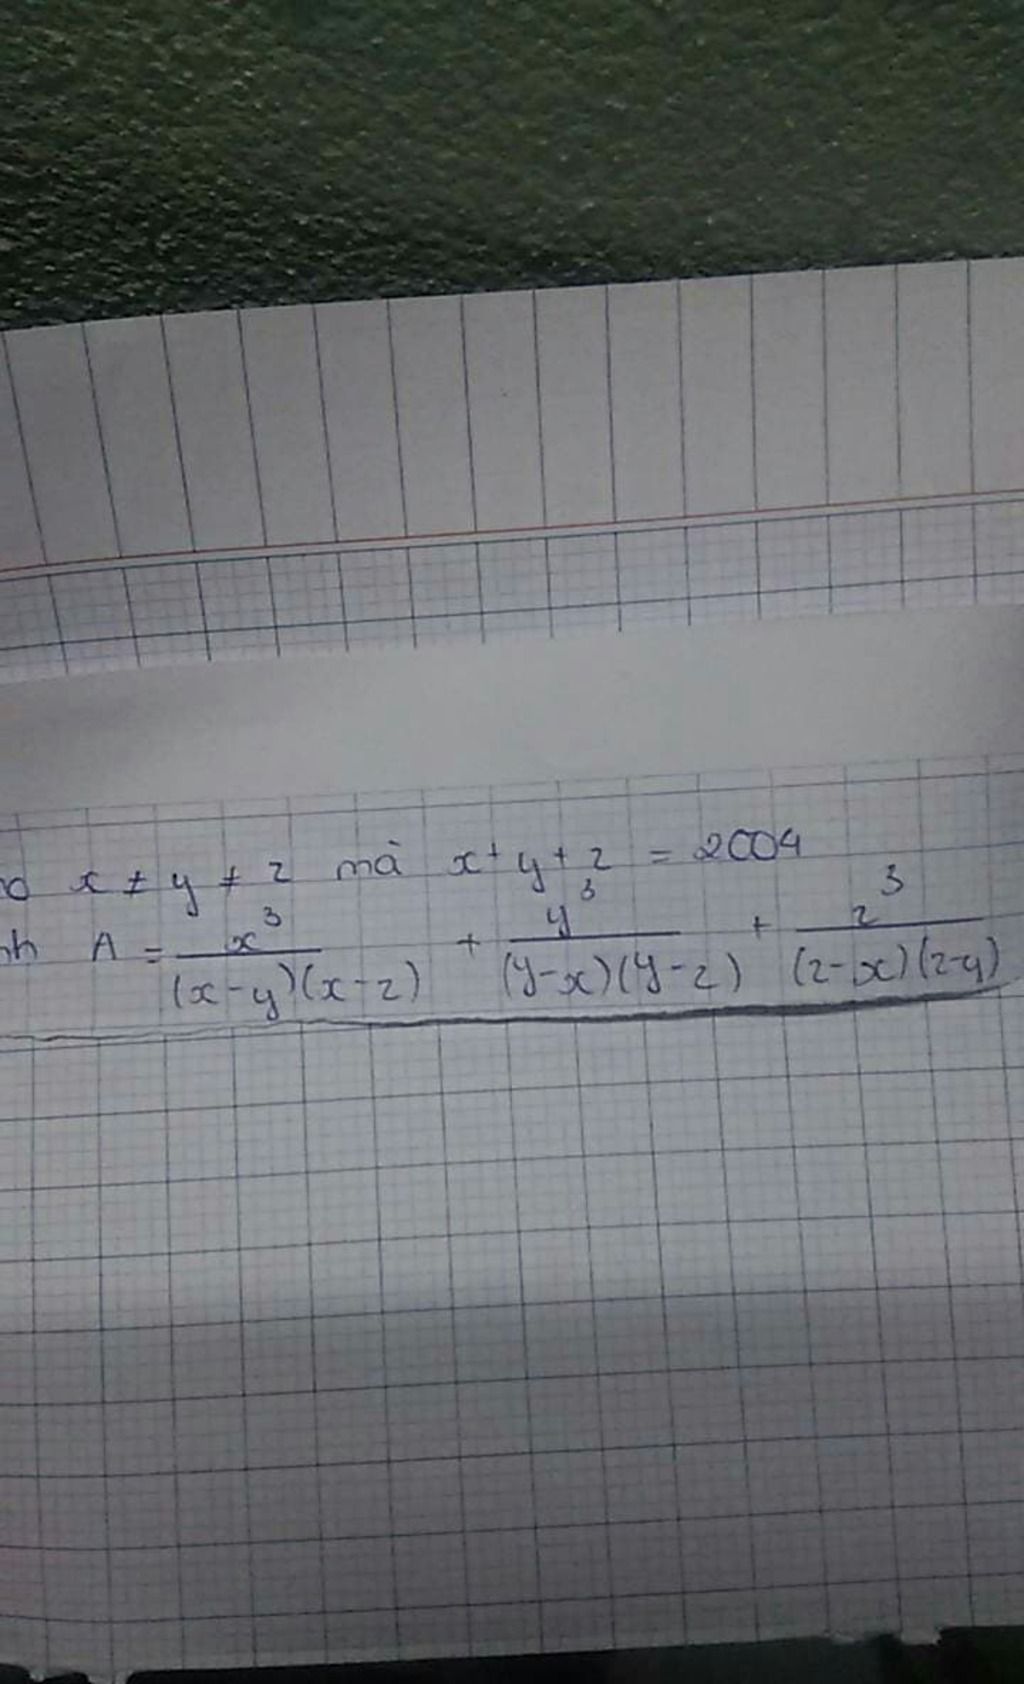 x ≠ y ≠ z mà x + y + z = 2004
A = x³/((x-y)(x-z)) + y³/((y-x)(y-z)) + z³/((z-x)(z-y))